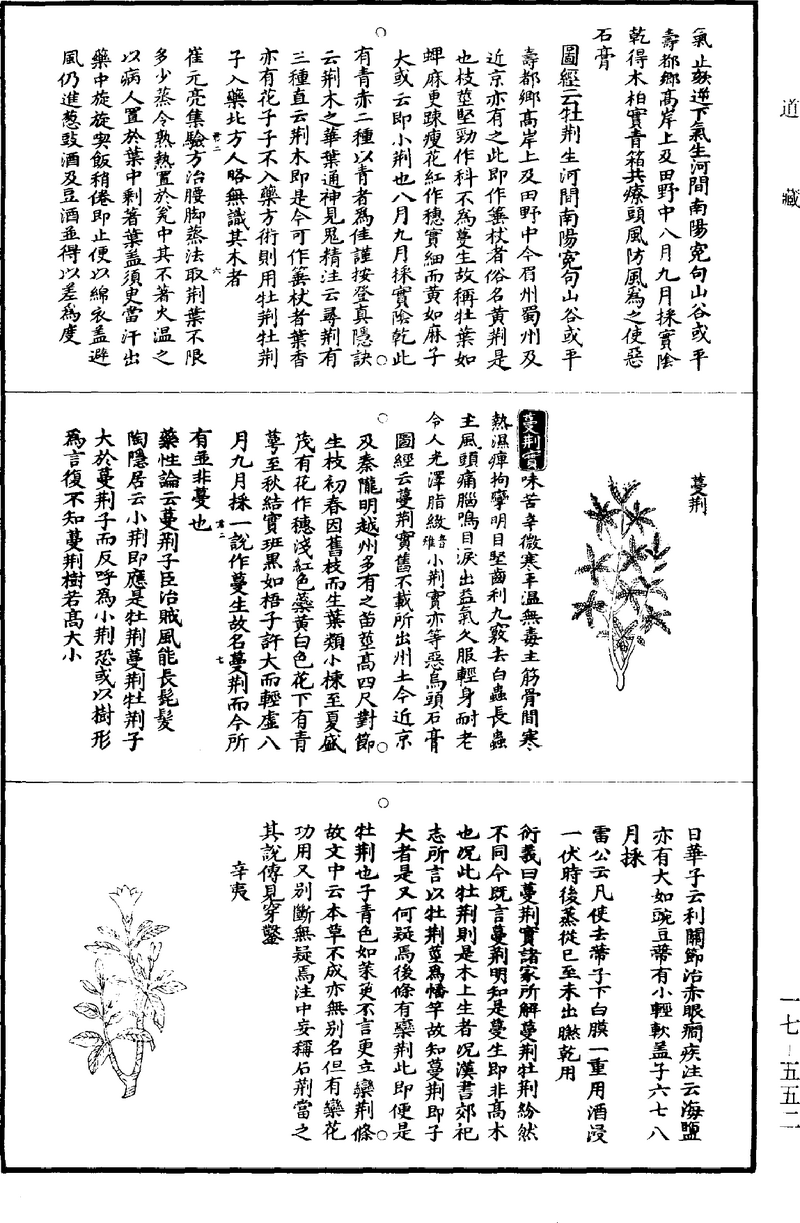 道藏
氣止欬逆下氣生河間南陽宛句山谷或平
壽都鄉高岸上及田野中八月九月採實陰
乾得木栢實青葙共療頭風防風為之使惡
石膏
圖經云牡荊生河間南陽宛句山谷或平
壽都鄉高岸上及田野中今眉州蜀州及
近京亦有之此即作箠杖者俗名黃荊是
也枝莖堅勁作科不為蔓生故稱牡葉如
蓖麻更踈瘦花紅作穗實細而黃如麻子
大或云即小荊也八月九月採實陰乾此
有青赤二種以青者為佳謹按登真隱訣
云荊木之華葉通神見鬼精注云尋荊有
三種直云荊木即是今可作箠杖者葉香
亦有花子子不入藥方術則用牡荊牡荊
子入藥北方人略無識其木者
崔元亮集驗方治腰脚蒸法取荊葉不限
多少蒸令熟熱置於瓮中其不著火溫之
以病人置於葉中剩著葉蓋須更當汗出
藥中旋旋喫飯稍倦即止便以綿衣蓋避
風仍進葱豉酒及豆酒並得以差為度
蔓荊
蔓荊實味苦辛微寒平溫無毒主筋骨間寒
熱濕痺拘攣明目堅齒利九竅去白蟲長蟲
主風頭痛腦鳴目淚出益氣久服輕身耐老
令人光澤脂緻小荊實亦等惡烏頭石膏
圖經云蔓荊實舊不載所出州土今近京
及秦隴明越州多有之苗莖高四尺對節
生枝初春因舊枝而生葉類小楝至夏盛
茂有花作穗淺紅色蘂黃白色花下有青
萼至秋結實班黑如梧子許大而輕虛八
月九月採一說作蔓生故名蔓荊而今所
有並非蔓也
藥性論云蔓荊子臣治賊風能長髭髮
陶隱居云小荊即應是牡荊蔓荊牡荊子
大於蔓荊子而反呼為小荊恐或以樹形
為言復不知蔓荊樹若高大小
日華子云利關節治赤眼癇疾注云海鹽
亦有大如豌豆蒂有小輕軟盖子六七八
月採
雷公云凡使去蒂子下白膜一重用酒浸
一伏時後蒸從巳至未出㬠乾用
衍義曰蔓荊實諸家所解蔓荊牡荊紛然
不同今既言蔓荊明知是蔓生即非高木
也況此牡荊則是木上生者況漢書郊祀
志所言以牡荊莖為幡竿故知蔓荊即子
大者是又何疑焉後條有欒荊此即便是
牡荊也子青色如茱萸不言更立欒荊條
故文中云本草不成亦無別名但有欒花
功用又別斷無疑焉注中妄稱石荊當之
其說傳見穿鑿
辛夷
一七－五五二